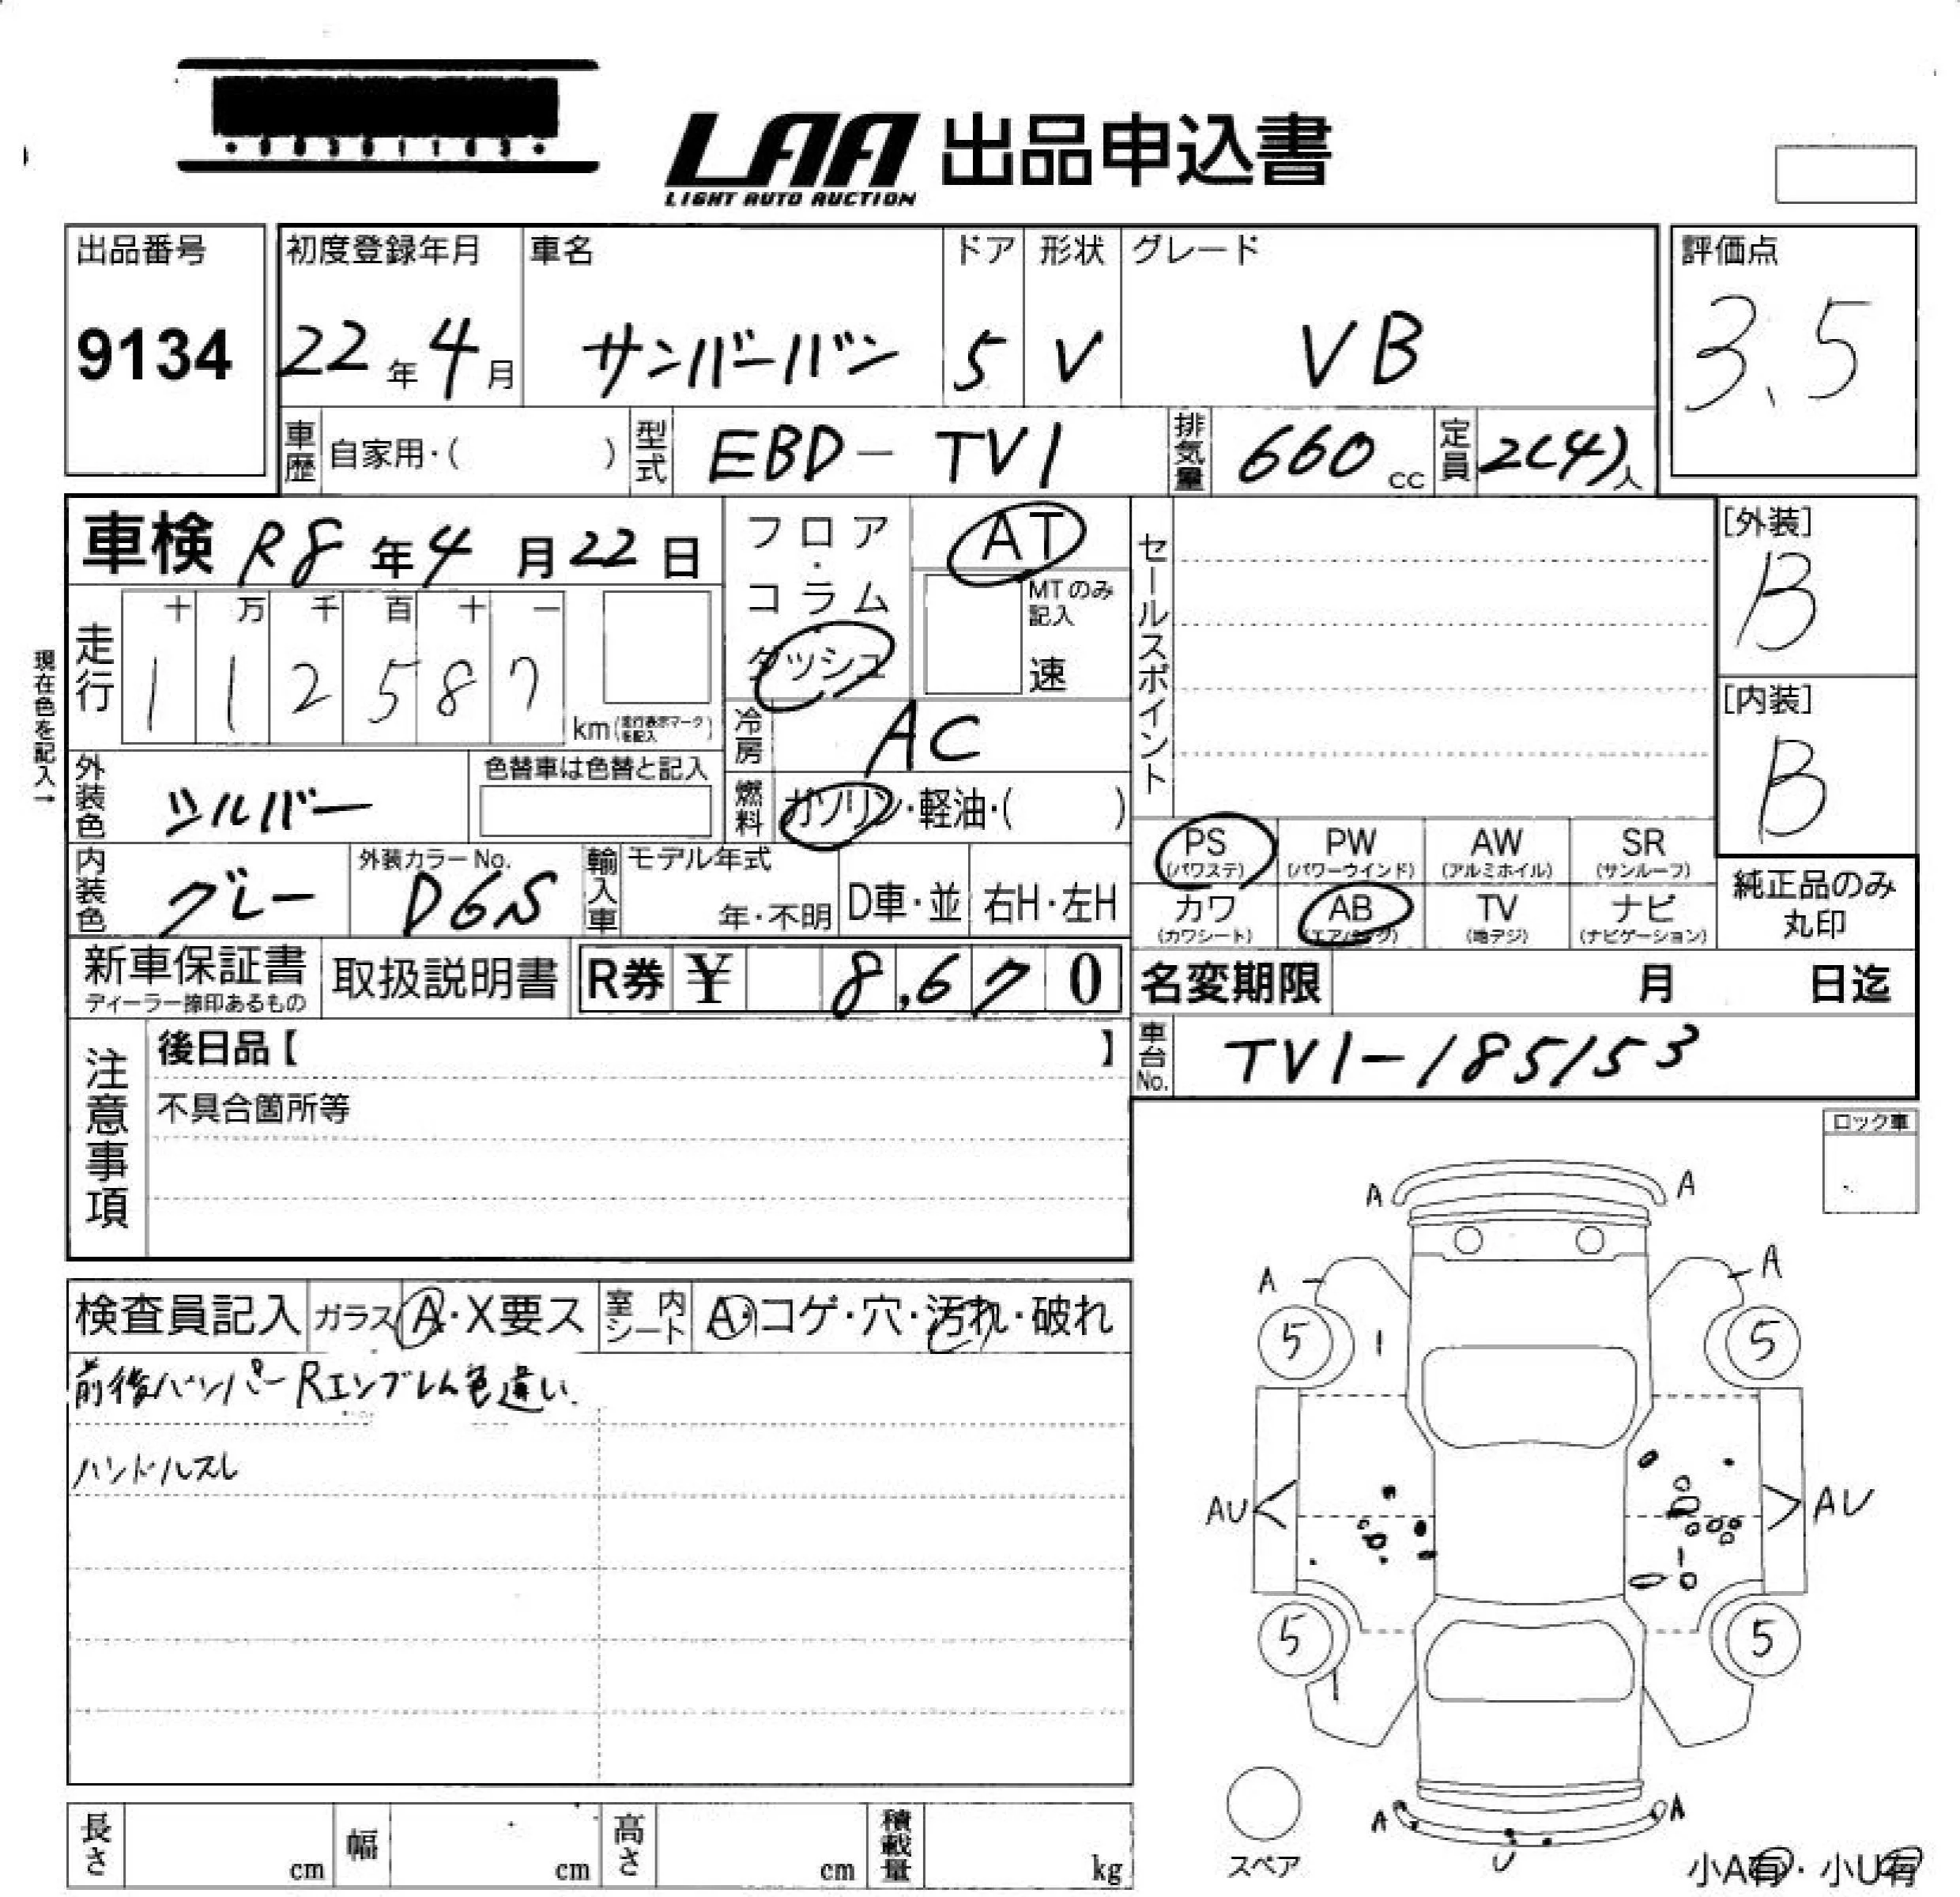 LAA 出品申込書
LIGHT AUTO AUCTION
出品番号
9134
初度登録年月
22年4月
車名
サンバーバン
ドア
5
形状
V
グレード
VB
評価点
3.5
車歴 自家用・( )
型式 EBD-TV1
排気量 660cc
定員 2(4)人
車検 R8年4月22日
フロア・コラム・ダッシュ
AT
MTのみ記入
速
セールスポイント
[外装]
B
[内装]
B
現在色を記入→
走行
十 万 千 百 十 一
1 1 2 5 8 7
km(走行表示マークを記入)
冷房 AC
外装色 シルバー
色替車は色替と記入
燃料 ガソリン・軽油・( )
内装色 グレー
外装カラーNo.
D6S
輸入車 モデル年式
年・不明
D車・並
右H・左H
PS (パワステ)
PW (パワーウインド)
AW (アルミホイル)
SR (サンルーフ)
カワ (カワシート)
AB (エアバッグ)
TV (地デジ)
ナビ (ナビゲーション)
純正品のみ丸印
新車保証書
ディーラー捺印あるもの
取扱説明書
R券 ¥ 8,670
名変期限 月 日迄
車台No. TV1-185153
注意事項
後日品【 】
不具合箇所等
ロック車
検査員記入
ガラス A・X要ス
室内シート A・コゲ・穴・汚れ・破れ
前後バンパー Rエンブレム色違い
ハンドルスレ
A A
A A
5 5
AU AU
5 5
A A
U
スペア
小A有・小U有
長さ cm
幅 cm
高さ cm
積載量 kg